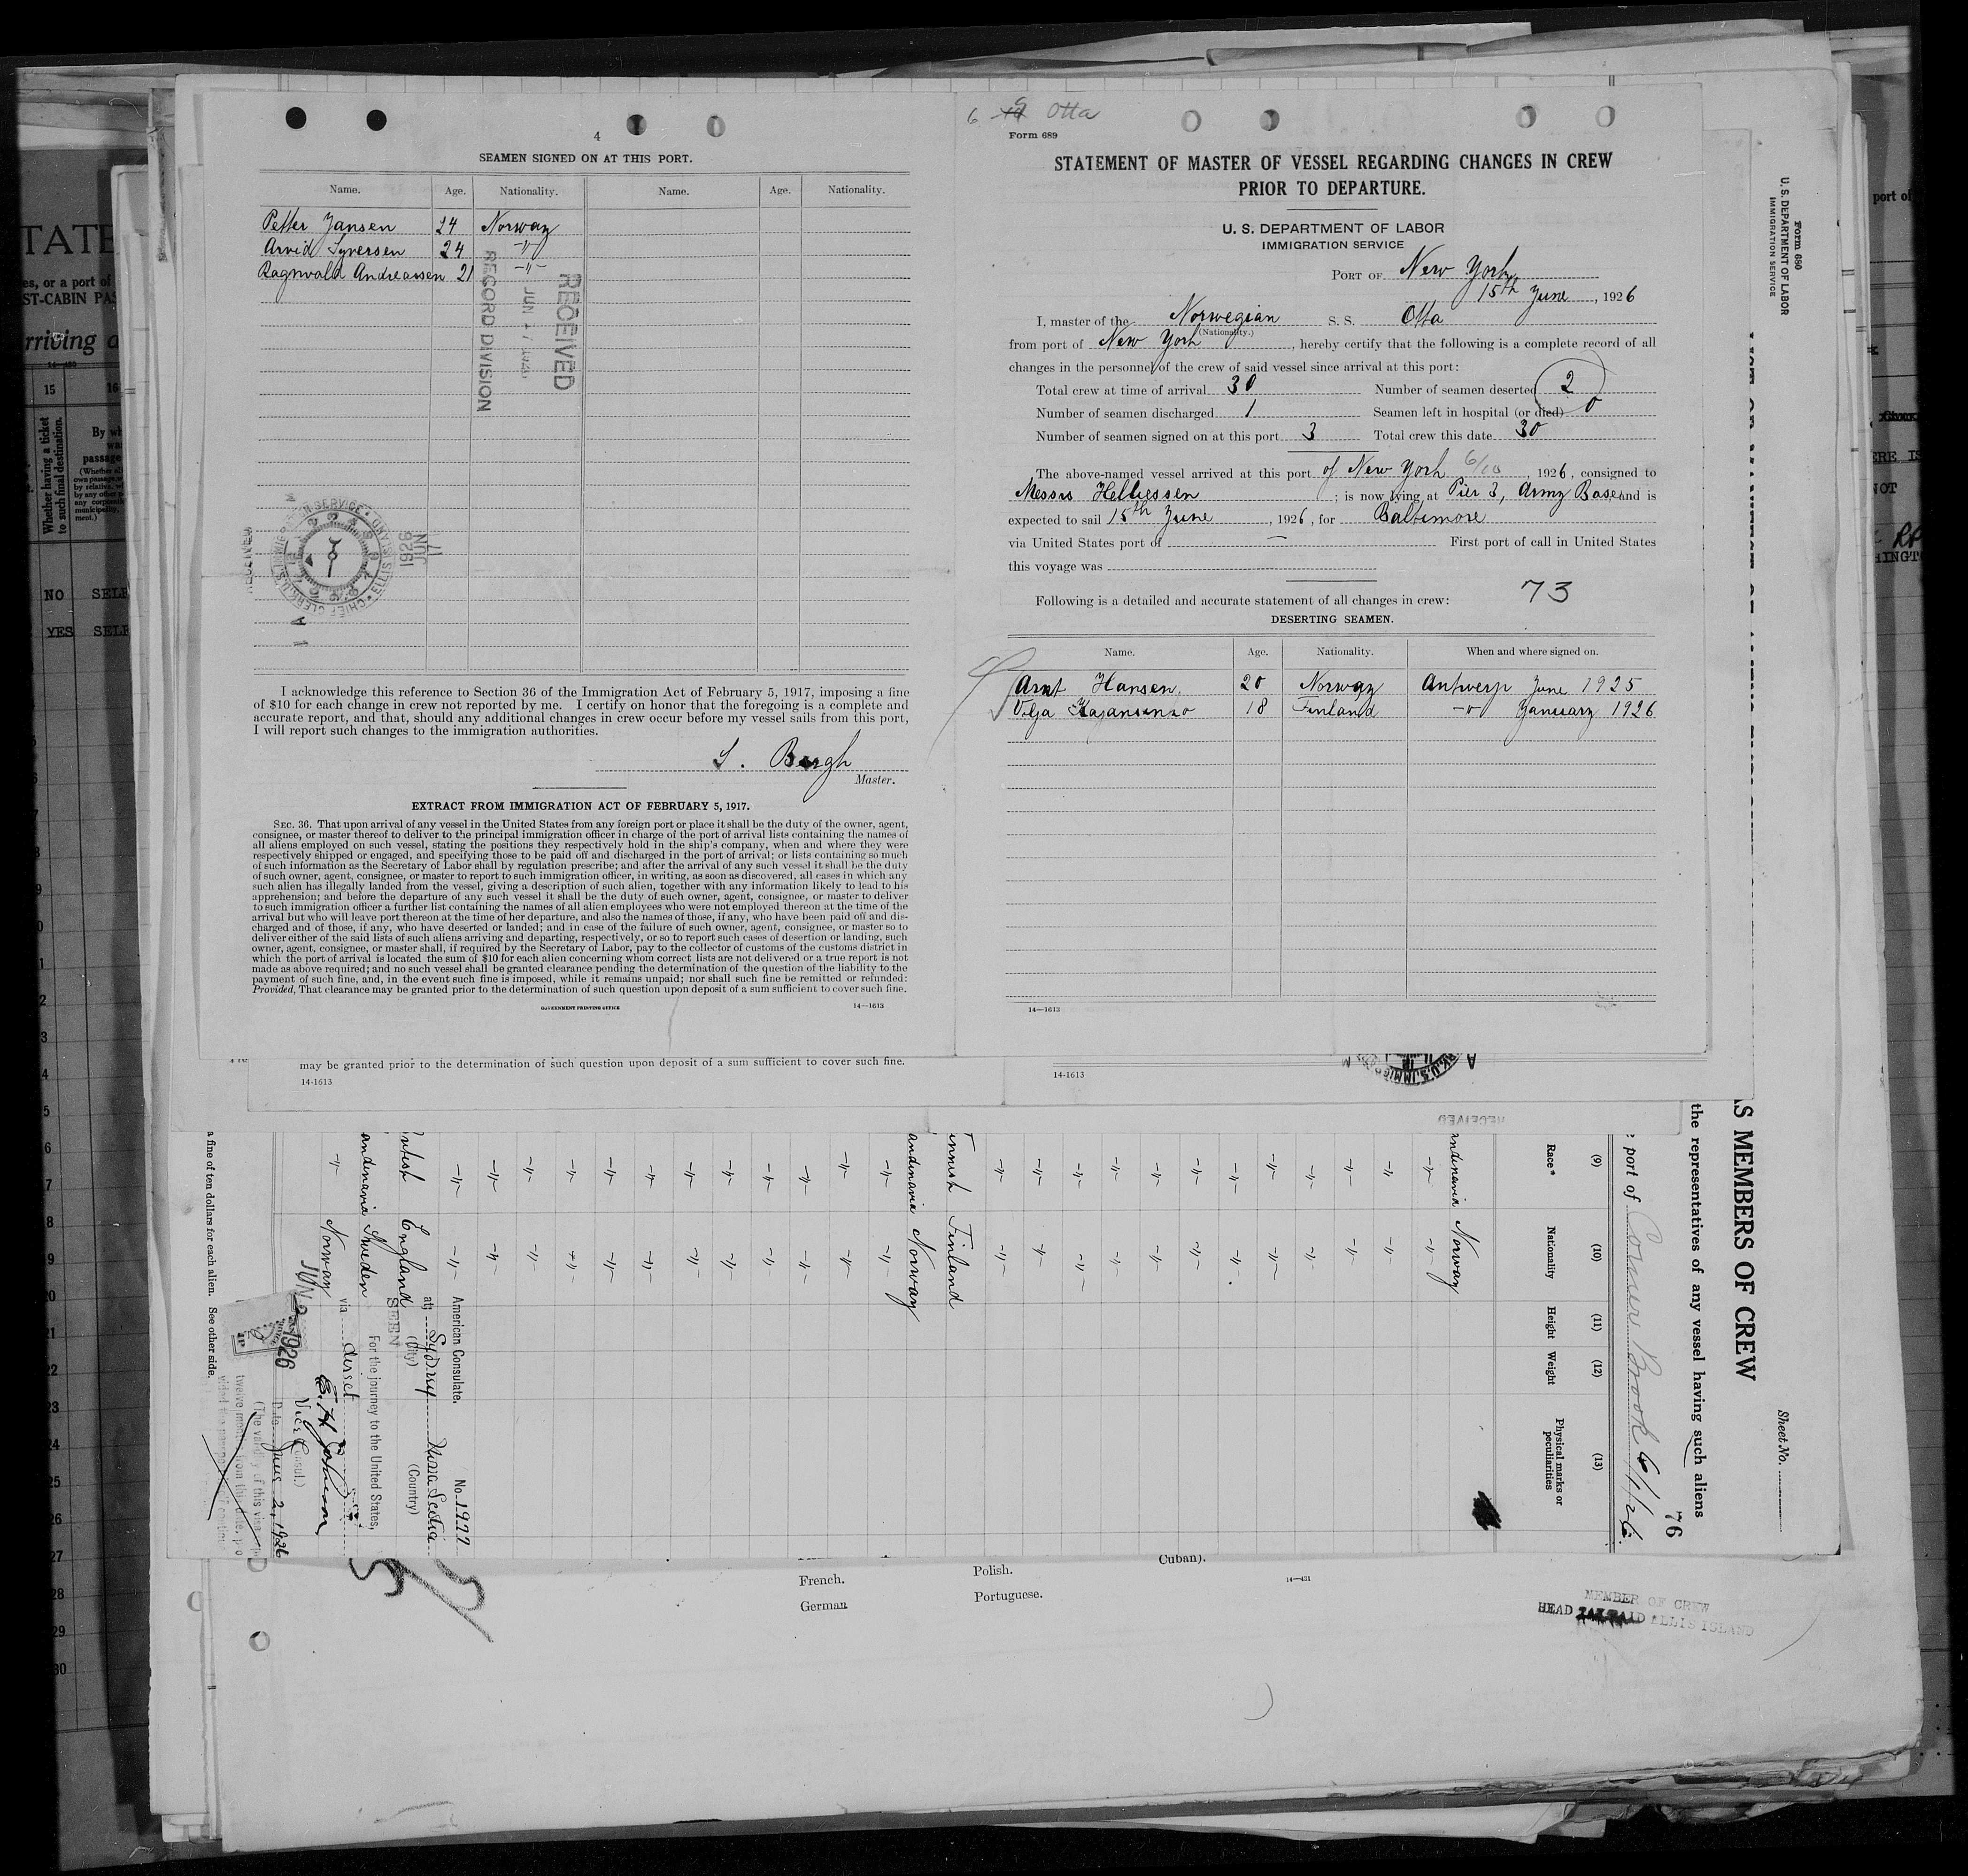 4
SEAMEN SIGNED ON AT THIS PORT.
Name. Age. Nationality. Name. Age. Nationality.
Petter Jansen 24 Norway
Arvid Syversen 24 -"-
Ragnvald Andreassen 21 -"-
RECEIVED
RECORD DIVISION
RECEIVED
CHIEF CLERK, U.S. IMMIGRATION SERVICE ELLIS ISLAND
JUN 17 1926
I acknowledge this reference to Section 36 of the Immigration Act of February 5, 1917, imposing a fine
of $10 for each change in crew not reported by me. I certify on honor that the foregoing is a complete and
accurate report, and that, should any additional changes in crew occur before my vessel sails from this port,
I will report such changes to the immigration authorities.
S. Bergh
Master.
EXTRACT FROM IMMIGRATION ACT OF FEBRUARY 5, 1917.
SEC. 36. That upon arrival of any vessel in the United States from any foreign port or place it shall be the duty of the owner, agent,
consignee, or master thereof to deliver to the principal immigration officer in charge of the port of arrival lists containing the names of
all aliens employed on such vessel, stating the positions they respectively hold in the ship's company, when and where they were
respectively shipped or engaged, and specifying those to be paid off and discharged in the port of arrival; or lists containing so much
of such information as the Secretary of Labor shall by regulation prescribe; and after the arrival of any such vessel it shall be the duty
of such owner, agent, consignee, or master to report to such immigration officer, in writing, as soon as discovered, all cases in which any
such alien has illegally landed from the vessel, giving a description of such alien, together with any information likely to lead to his
apprehension; and before the departure of any such vessel it shall be the duty of such owner, agent, consignee, or master to deliver
to such immigration officer a further list containing the names of all alien employees who were not employed thereon at the time of the
arrival but who will leave port thereon at the time of her departure, and also the names of those, if any, who have been paid off and dis-
charged and of those, if any, who have deserted or landed; and in case of the failure of such owner, agent, consignee, or master so to
deliver either of the said lists of such aliens arriving and departing, respectively, or so to report such cases of desertion or landing, such
owner, agent, consignee, or master shall, if required by the Secretary of Labor, pay to the collector of customs of the customs district in
which the port of arrival is located the sum of $10 for each alien concerning whom correct lists are not delivered or a true report is not
made as above required; and no such vessel shall be granted clearance pending the determination of the question of the liability to the
payment of such fine, and, in the event such fine is imposed, while it remains unpaid; nor shall such fine be remitted or refunded:
Provided, That clearance may be granted prior to the determination of such question upon deposit of a sum sufficient to cover such fine.
GOVERNMENT PRINTING OFFICE 14—1613
may be granted prior to the determination of such question upon deposit of a sum sufficient to cover such fine.
14-1613
6 Otta
Form 689
STATEMENT OF MASTER OF VESSEL REGARDING CHANGES IN CREW
PRIOR TO DEPARTURE.
U. S. DEPARTMENT OF LABOR
IMMIGRATION SERVICE
PORT OF New York,
15th June, 1926
I, master of the Norwegian S. S. Otta
(Nationality.)
from port of New York, hereby certify that the following is a complete record of all
changes in the personnel of the crew of said vessel since arrival at this port:
Total crew at time of arrival 30 Number of seamen deserted 2
Number of seamen discharged 1 Seamen left in hospital (or died) 0
Number of seamen signed on at this port 3 Total crew this date 30
The above-named vessel arrived at this port of New York 6/10, 1926, consigned to
Messrs ; is now lying at Pier 3, Army Base and is
expected to sail 15th June, 1926, for Baltimore
via United States port of — First port of call in United States
this voyage was
Following is a detailed and accurate statement of all changes in crew: 73
DESERTING SEAMEN.
Name. Age. Nationality. When and where signed on.
Arnt Hansen, 20 Norway Antwerp June 1925
18 Finland -"- January 1926
14—1613
14-1613
RECEIVED
Form 680
U. S. DEPARTMENT OF LABOR
IMMIGRATION SERVICE
AS MEMBERS OF CREW
Sheet No.
the representatives of any vessel having such aliens
76
port of Corner Brook 6/1/26.
(9) (10) (11) (12) (13)
Race* Nationality Height Weight Physical marks or peculiarities
andinavia Norway
innish Finland
andinavia Norway
England
andinavia Sweden
-"- Norway
American Consulate. No. 1977
at Sydney Nova Scotia
(City) (Country)
SEEN
For the journey to the United States,
via direct
Vice Consul.
JUN 2 1926
Date June 2, 1926
(The validity of this visa
a fine of ten dollars for each alien. See other side.
French.
German
Polish.
Portuguese.
Cuban).
14—431
MEMBER OF CREW
HEAD TAX PAID ELLIS ISLAND
TATE
es, or a port of
ST-CABIN PAS
rriving a
15 16
Whether having a ticket to such final destination.
NO SELF
YES SELF
port of